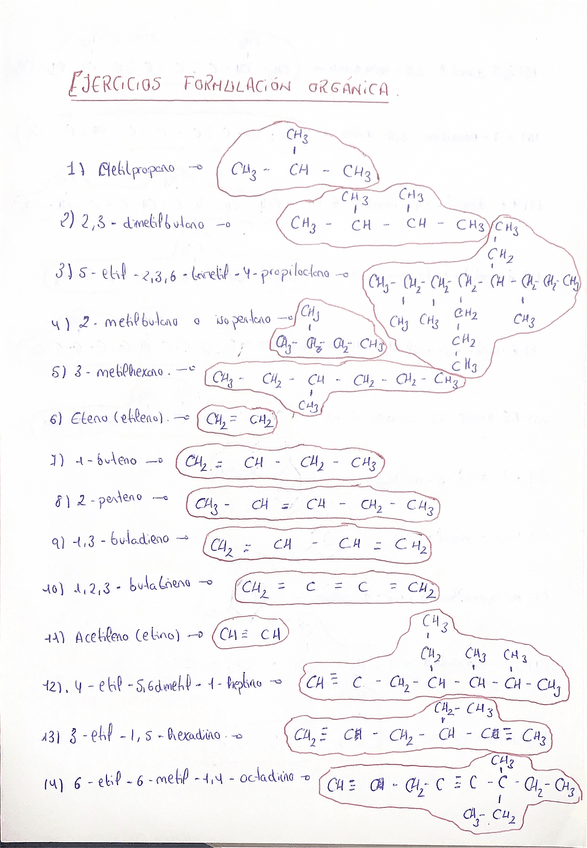 EJERCICIOS FORMULACIÓN ORGÁNICA.
CH3
1) Metilpropano → CH3 - CH - CH3
CH3 CH3
2) 2,3 - dimetilbutano → CH3 - CH - CH - CH3
CH3
CH2
3) 5 - etil - 2,3,6 - trimetil - 4 - propiloctano → CH3 - CH2 - CH2 - CH2 - CH - CH2 - CH2 - CH3
CH3 CH3 CH2 CH3
CH2
CH3
CH3
4) 2 - metilbutano o isopentano → CH3 - CH2 - CH2 - CH3
5) 3 - metilhexano. → CH3 - CH2 - CH - CH2 - CH2 - CH3
CH3
6) Eteno (etileno). → CH2 = CH2
7) 1 - buteno → CH2 = CH - CH2 - CH3
8) 2 - penteno → CH3 - CH = CH - CH2 - CH3
9) 1,3 - butadieno → CH2 = CH - CH = CH2
10) 1,2,3 - butatrieno → CH2 = C = C = CH2
11) Acetileno (etino) → CH ≡ CH
CH3
CH2 CH3 CH3
12). 4 - etil - 5,6 dimetil - 1 - heptino → CH ≡ C - CH2 - CH - CH - CH - CH3
CH2 - CH3
13) 3 - etil - 1,5 - hexadino. → CH2 ≡ CH - CH2 - CH - C ≡ CH3
CH3
14) 6 - etil - 6 - metil - 1,4 - octadiino → CH ≡ CH - CH2 - C ≡ C - C - CH2 - CH3
CH3 - CH2